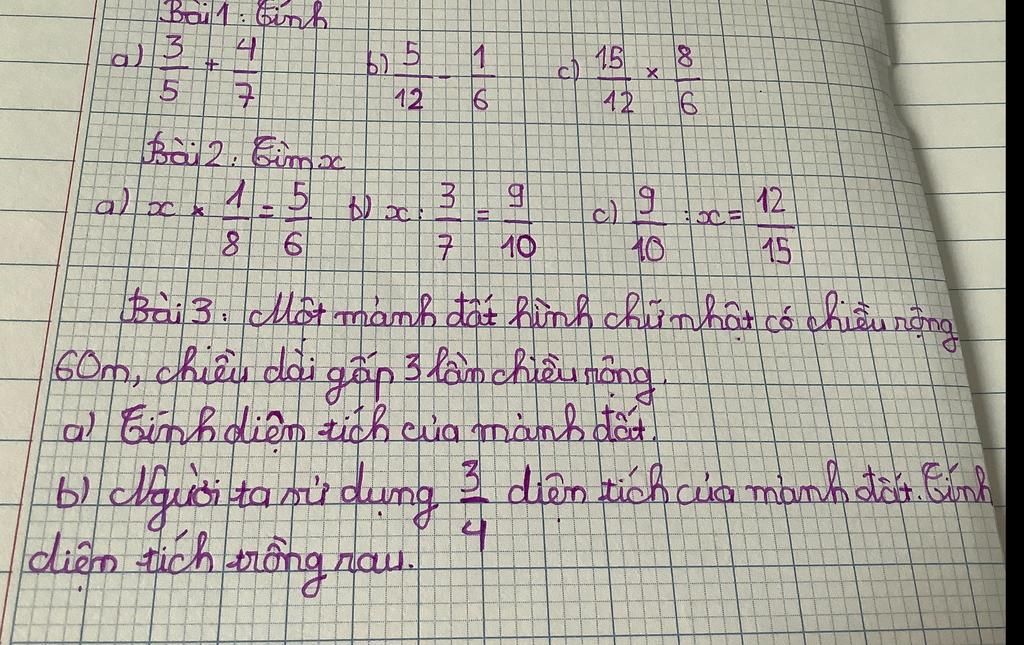 Bài 1: Tính
a) 3/5 + 4/7 b) 5/12 - 1/6 c) 15/12 × 8/6
Bài 2: Tìm x
a) x × 1/8 = 5/6 b) x : 3/7 = 9/10 c) 9/10 : x = 12/15
Bài 3: Một mảnh đất hình chữ nhật có chiều rộng
60m, chiều dài gấp 3 lần chiều rộng.
a) Tính diện tích của mảnh đất.
b) Người ta sử dụng 3/4 diện tích của mảnh đất. Tính
diện tích trồng rau.